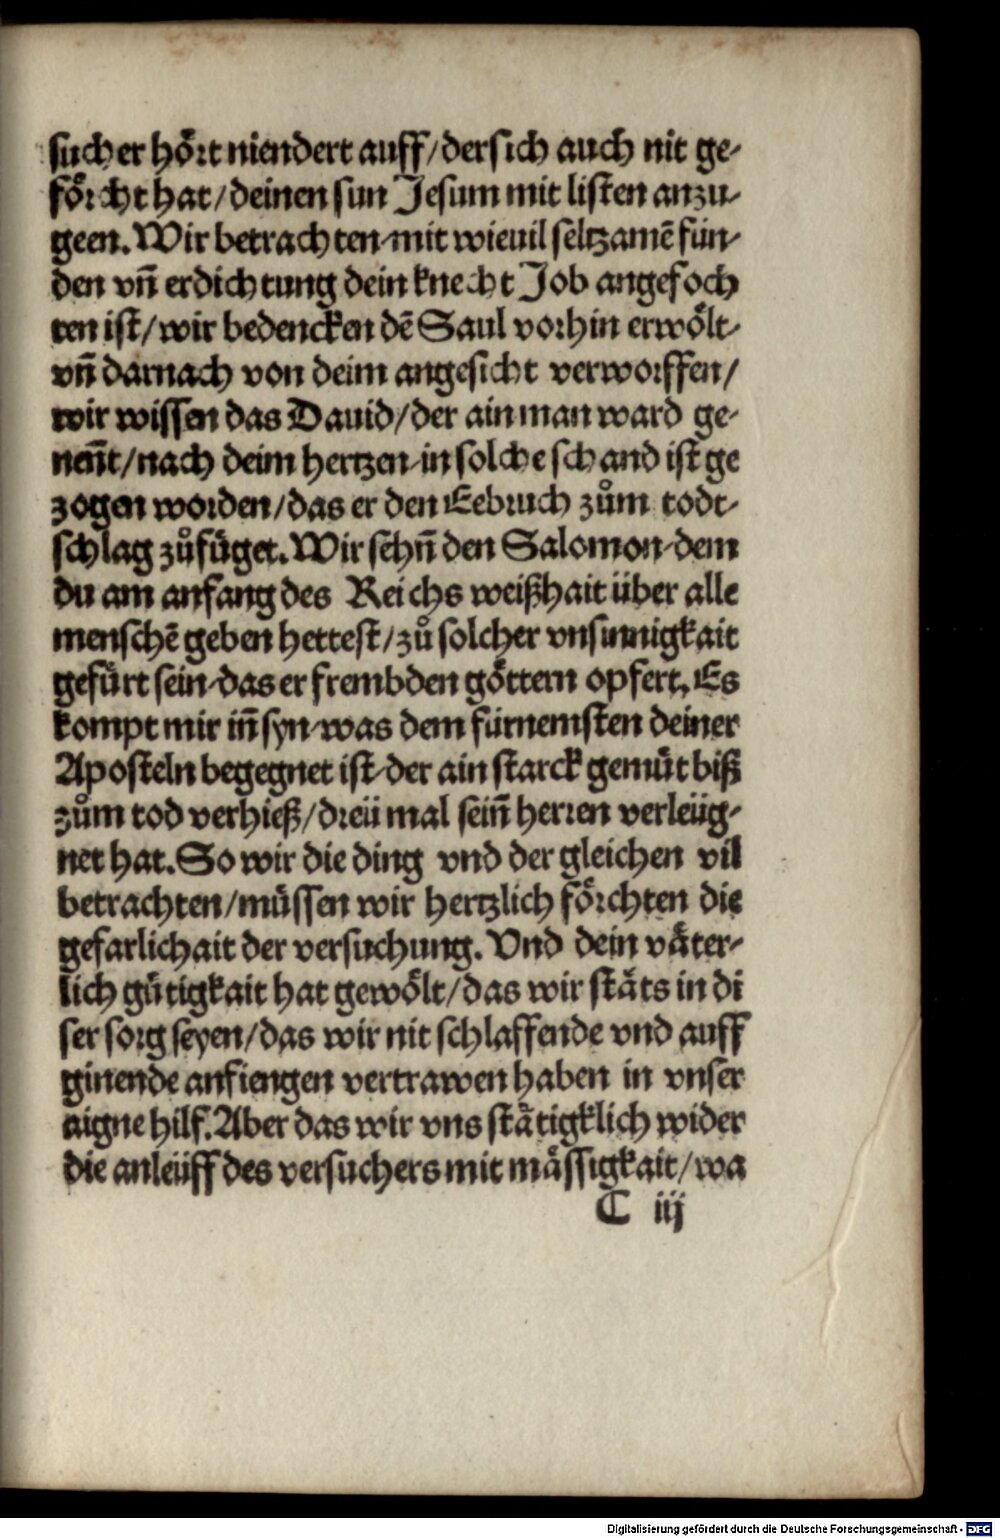 sucher hoͤrt niendert auff/der sich auch nit ge-
foͤrcht hat/deinen sun Jesum mit listen anzu-
geen. Wir betrachten-mit wieuil seltzamē fün-
den vñ erdichtung dein knecht Job angefoch
ten ist/wir bedencken dē Saul vorhin erwoͤlt-
vñ darnach von deim angesicht verworffen/
wir wissen das Dauid/der ain man ward ge-
nen̄t/nach deim hertzen-in solche schand ist ge
zogen worden/das er den Eebruch zům todt-
schlag zůfüget. Wir sehn̄ den Salomon-dem
du am anfang des Reichs weißhait über alle
menschē geben hettest/zů solcher vnsinnigkait
gefürt sein-das er frembden goͤttern opfert. Es
kompt mir in̄ syn-was dem fürnemsten deiner
Aposteln begegnet ist-der ain starck gemüt biß
zům tod verhieß/dreü mal sein̄ herren verleüg-
net hat. So wir die ding vnd der gleichen vil
betrachten/müssen wir hertzlich foͤrchten die
gefarlichait der versuchung. Vnd dein vaͤter-
lich gütigkait hat gewoͤlt/das wir staͤts in di
ser sorg seyen/das wir nit schlaffende vnd auff
ginende anfiengen vertrawen haben in vnser
aigne hilf. Aber das wir vns staͤtigklich wider
die anleüff des versuchers mit maͤssigkait/wa
C iij
Digitalisierung gefördert durch die Deutsche Forschungsgemeinschaft - DFG